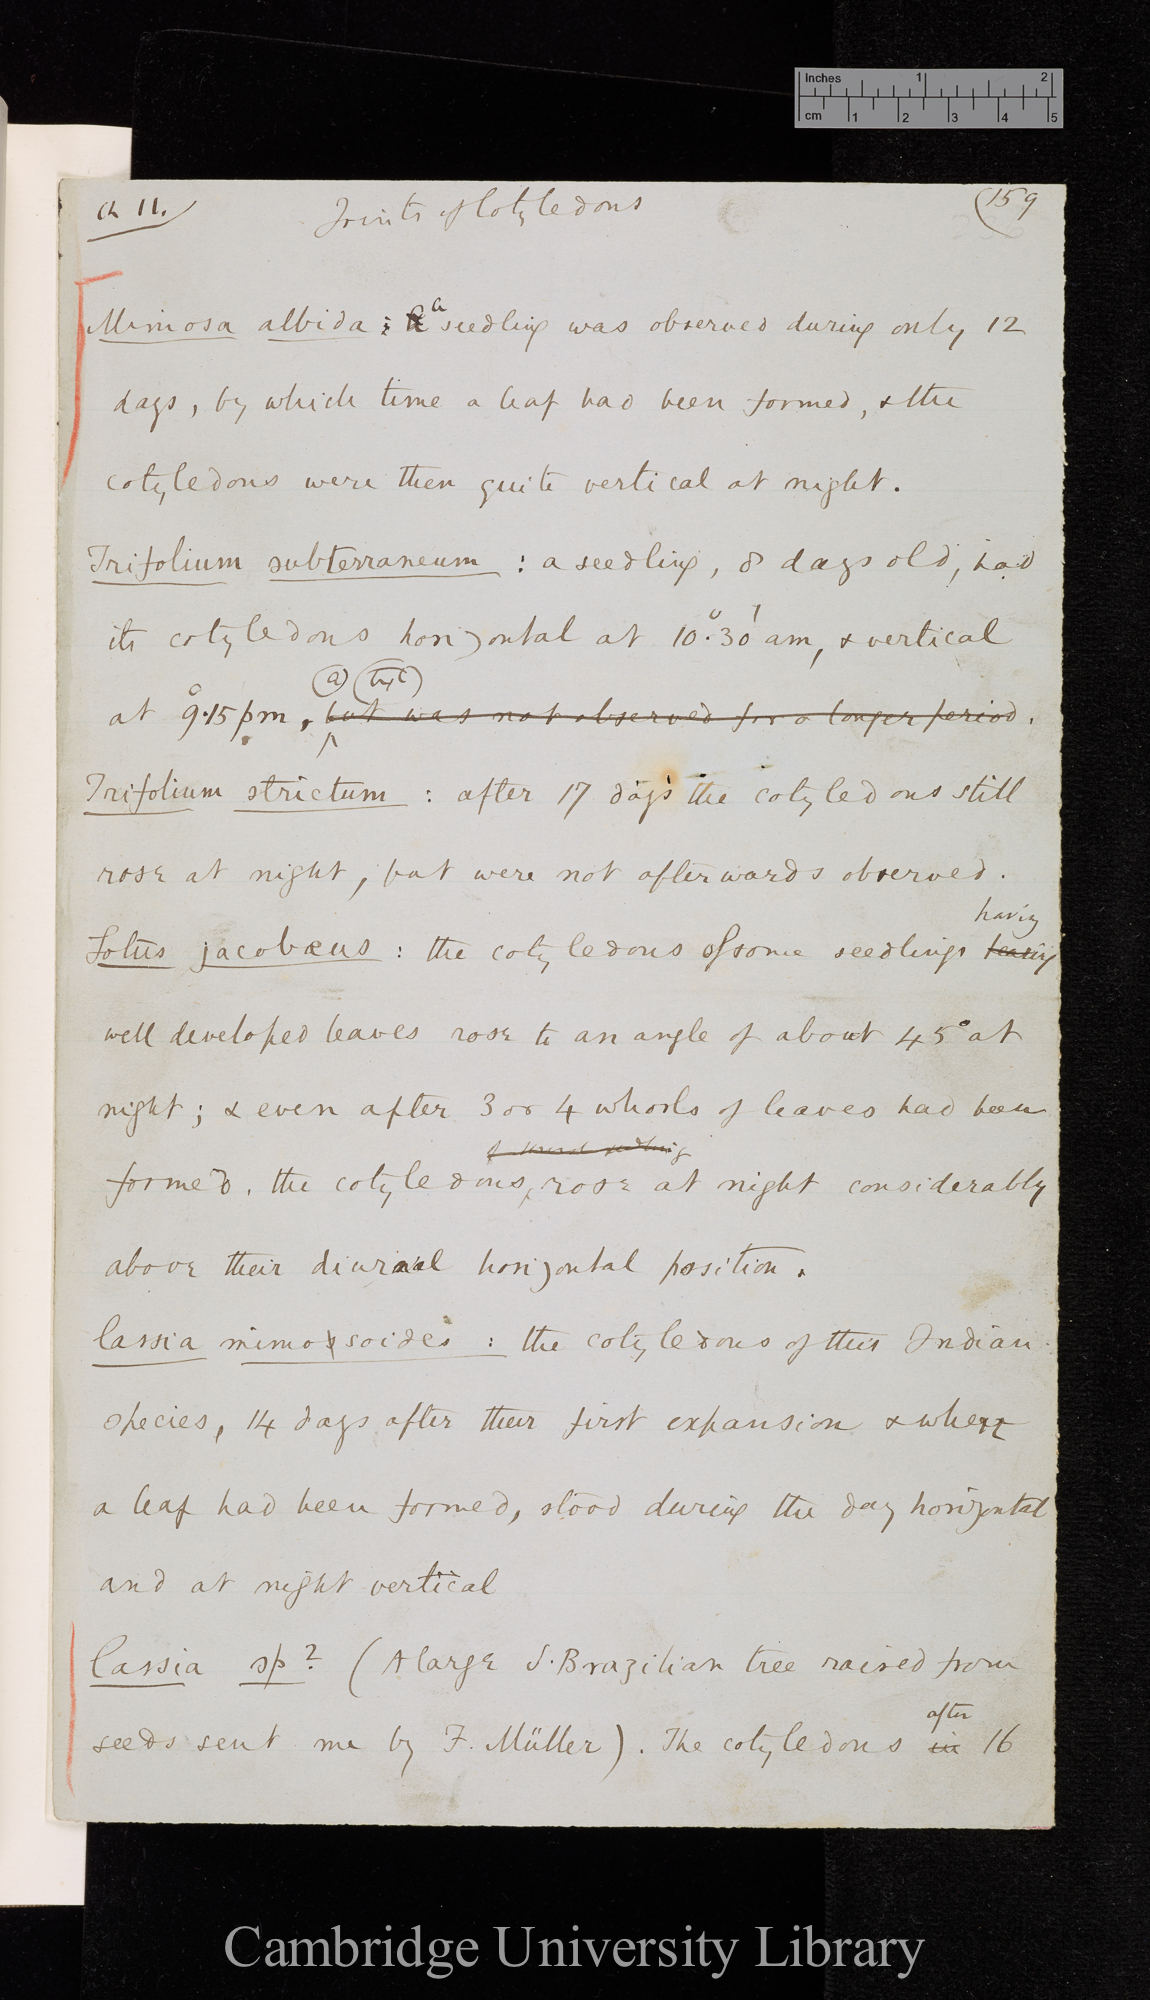 Inches 1 2
cm 1 2 3 4 5
Ch II.
Joints of Cotyledons
(159
Mimosa albida : a seedling was observed during only 12
days, by which time a leaf had been formed, & the
cotyledons were then quite vertical at night.
Trifolium subterraneum : a seedling, 8 days old, had
its cotyledons horizontal at 10°.30' am, & vertical
(a)
at 9°.15 pm, but was not observed for a longer period.
Trifolium strictum : after 17 days the cotyledons still
rose at night, but were not afterwards observed.
having
Lotus jacobæus : the cotyledons of some seedlings
well developed leaves rose to an angle of about 45° at
night; & even after 3 or 4 whorls of leaves had been
of several seedling
formed, the cotyledons, rose at night considerably
above their diurnal horizontal position.
Cassia mimosoides : the cotyledons of this Indian
species, 14 days after their first expansion & when
a leaf had been formed, stood during the day horizontal
and at night vertical
Cassia sp? (A large S. Brazilian tree raised from
after
seeds sent me by F. Müller). The cotyledons in 16
Cambridge University Library